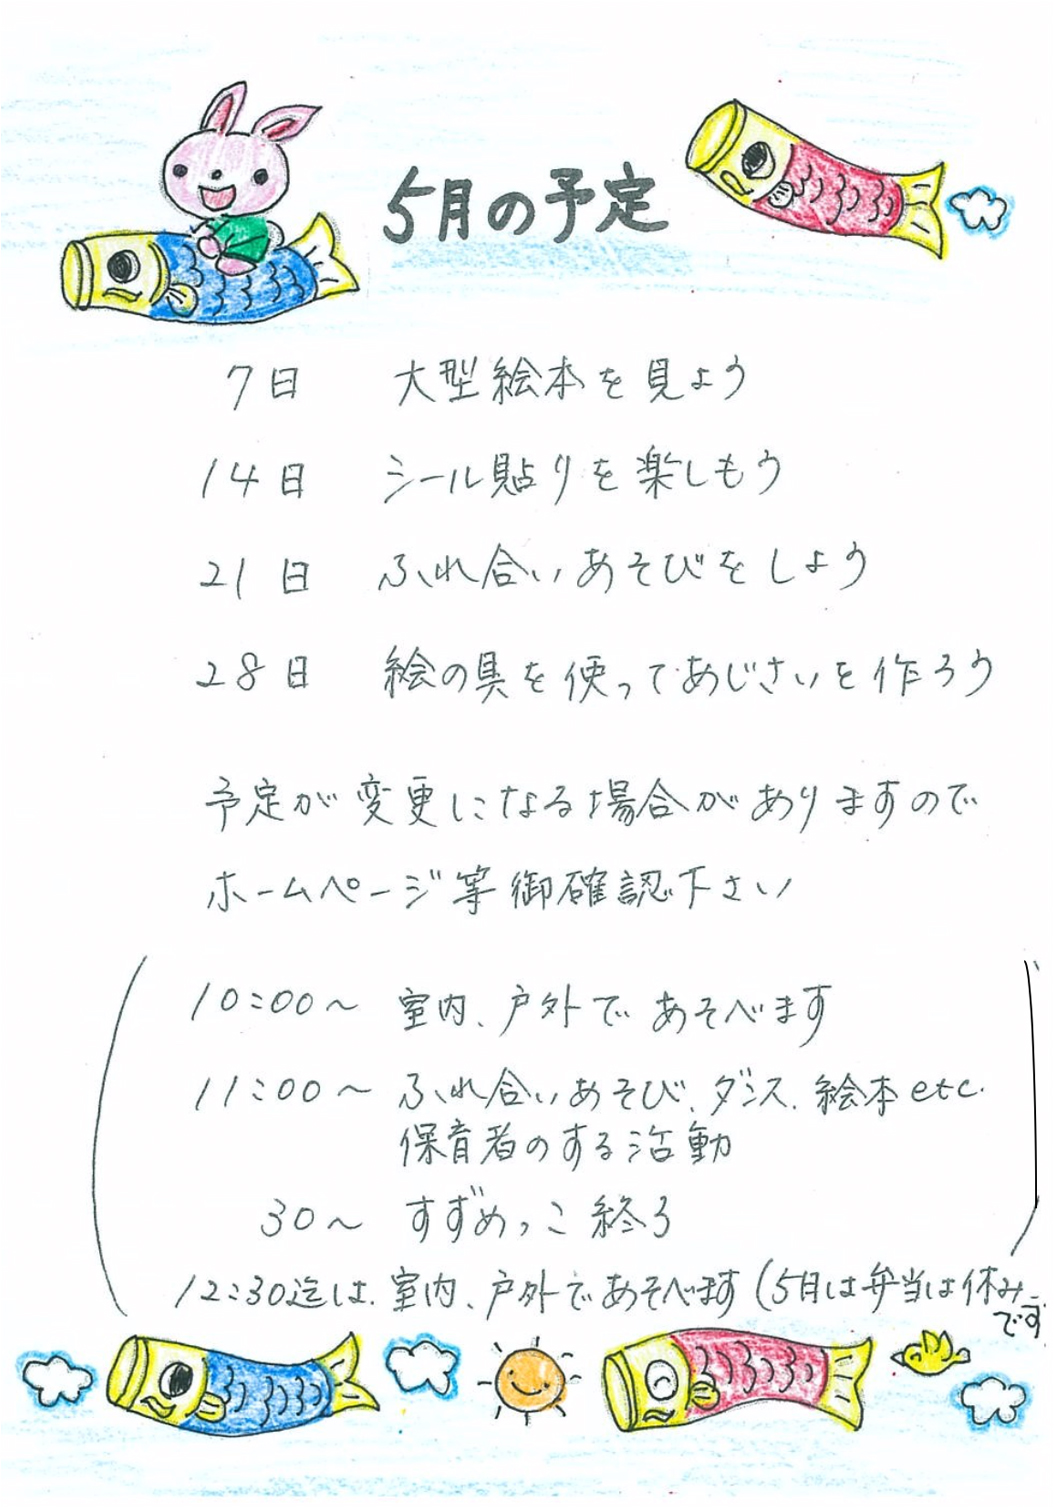 5月の予定
7日 大型絵本を見よう
14日 シール貼りを楽しもう
21日 ふれ合いあそびをしよう
28日 絵の具を使ってあじさいを作ろう
予定が変更になる場合がありますので
ホームページ等御確認下さい
10:00～ 室内、戸外であそべます
11:00～ ふれ合いあそび、ダンス、絵本etc.
保育者のする活動
30～ すずめっこ終ろ
12:30迄は、室内、戸外であそべます(5月は弁当は休み
です